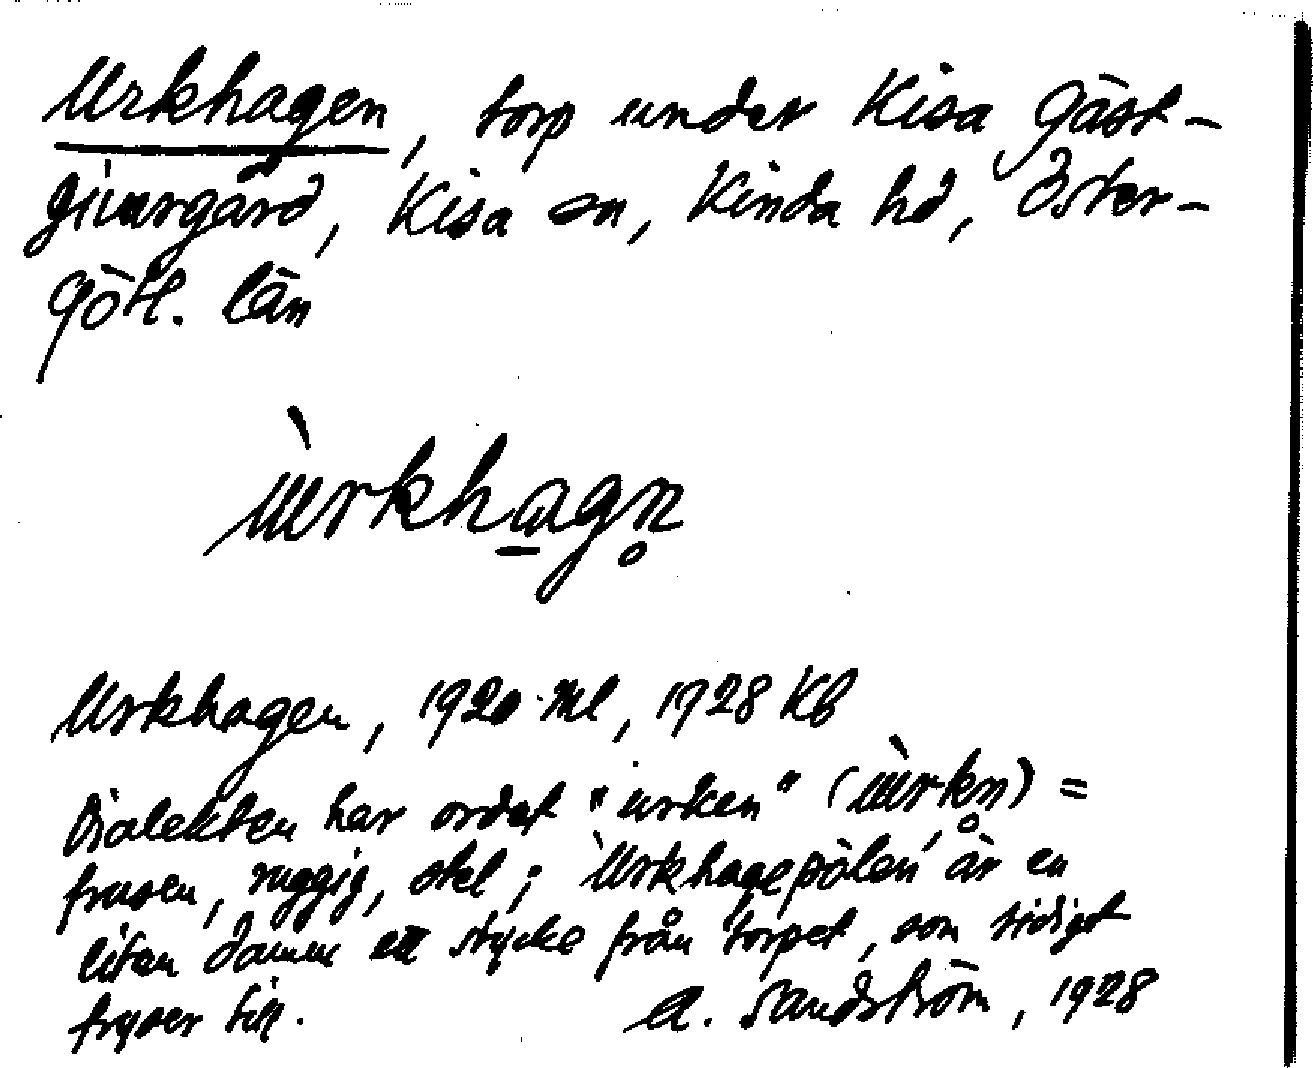 Urkhagen, torp under Kisa Gäst-
givargård, Kisa sn, Kinda hd, Öster-
götl. län
ùrkha̱gn̥
Urkhagen, 1920 Ml, 1728 Kb
Dialekten har ordet "urken" (ùrkn̥) =
frusen, ruggig, stel; 'Urkhagepölen' är en
liten damm ett stycke från torpet, som tidigt
fryser till.
A. Sandström, 1928